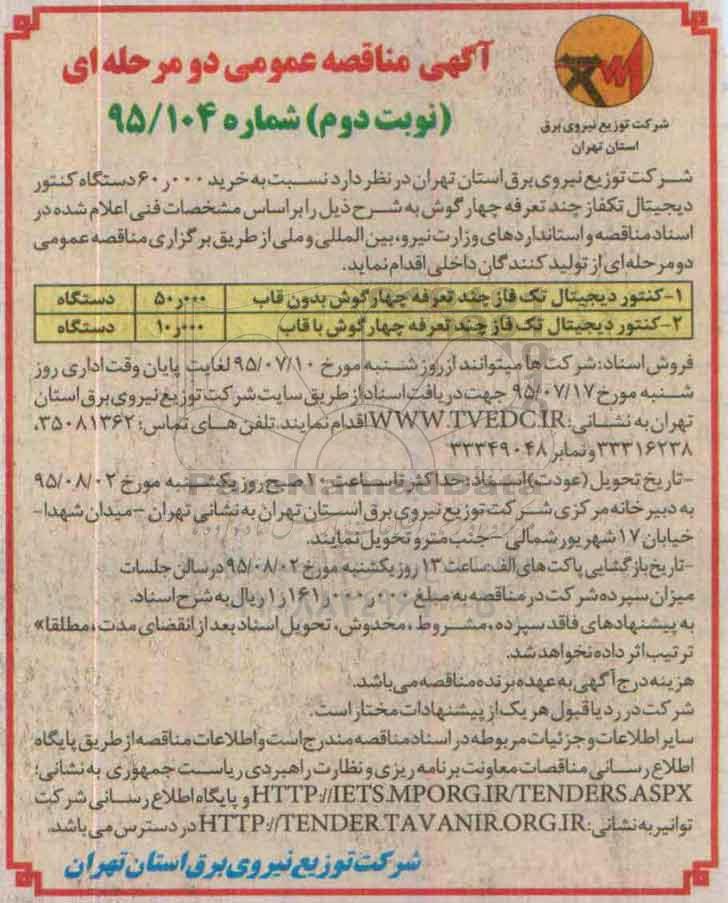 شرکت توزیع نیروی برق
استان تهران
آگهی مناقصه عمومی دو مرحله ای
(نوبت دوم) شماره ۹۵/۱۰۴
شرکت توزیع نیروی برق استان تهران در نظر دارد نسبت به خرید ۶۰٫۰۰۰ دستگاه کنتور
دیجیتال تکفاز چند تعرفه چهار گوش به شرح ذیل را براساس مشخصات فنی اعلام شده در
اسناد مناقصه و استانداردهای وزارت نیرو، بین المللی و ملی از طریق برگزاری مناقصه عمومی
دو مرحله ای از تولید کنندگان داخلی اقدام نماید.
۱-کنتور دیجیتال تک فاز چند تعرفه چهار گوش بدون قاب ۵۰٫۰۰۰ دستگاه
۲-کنتور دیجیتال تک فاز چند تعرفه چهار گوش با قاب ۱۰٫۰۰۰ دستگاه
فروش اسناد: شرکت ها میتوانند از روز شنبه مورخ ۹۵/۰۷/۱۰ لغایت پایان وقت اداری روز
شنبه مورخ ۹۵/۰۷/۱۷ جهت دریافت اسناد از طریق سایت شرکت توزیع نیروی برق استان
تهران به نشانی: WWW.TVEDC.IR اقدام نمایند. تلفن های تماس: ۳۵۰۸۱۳۶۲،
۳۳۳۱۶۲۳۸ و نمابر ۳۳۳۴۹۰۴۸
-تاریخ تحویل (عودت) اسناد: حداکثر تا ساعت ۱۰ صبح روز یکشنبه مورخ ۹۵/۰۸/۰۲
به دبیرخانه مرکزی شرکت توزیع نیروی برق استان تهران به نشانی تهران -میدان شهدا-
خیابان ۱۷ شهریور شمالی -جنب مترو تحویل نمایند.
-تاریخ بازگشایی پاکت های الف: ساعت ۱۳ روز یکشنبه مورخ ۹۵/۰۸/۰۲ در سالن جلسات
میزان سپرده شرکت در مناقصه به مبلغ ۱٫۱۶۱٫۰۰۰٫۰۰۰ ریال به شرح اسناد.
به پیشنهادهای فاقد سپرده، مشروط، مخدوش، تحویل اسناد بعد از انقضای مدت، مطلقا»
ترتیب اثر داده نخواهد شد.
هزینه درج آگهی به عهده برنده مناقصه می باشد.
شرکت در رد یا قبول هر یک از پیشنهادات مختار است.
سایر اطلاعات و جزئیات مربوطه در اسناد مناقصه مندرج است و اطلاعات مناقصه از طریق پایگاه
اطلاع رسانی مناقصات معاونت برنامه ریزی و نظارت راهبردی ریاست جمهوری به نشانی؛
HTTP://IETS.MPORG.IR/TENDERS.ASPX و پایگاه اطلاع رسانی شرکت
توانیر به نشانی: HTTP://TENDER.TAVANIR.ORG.IR در دسترس می باشد.
شرکت توزیع نیروی برق استان تهران